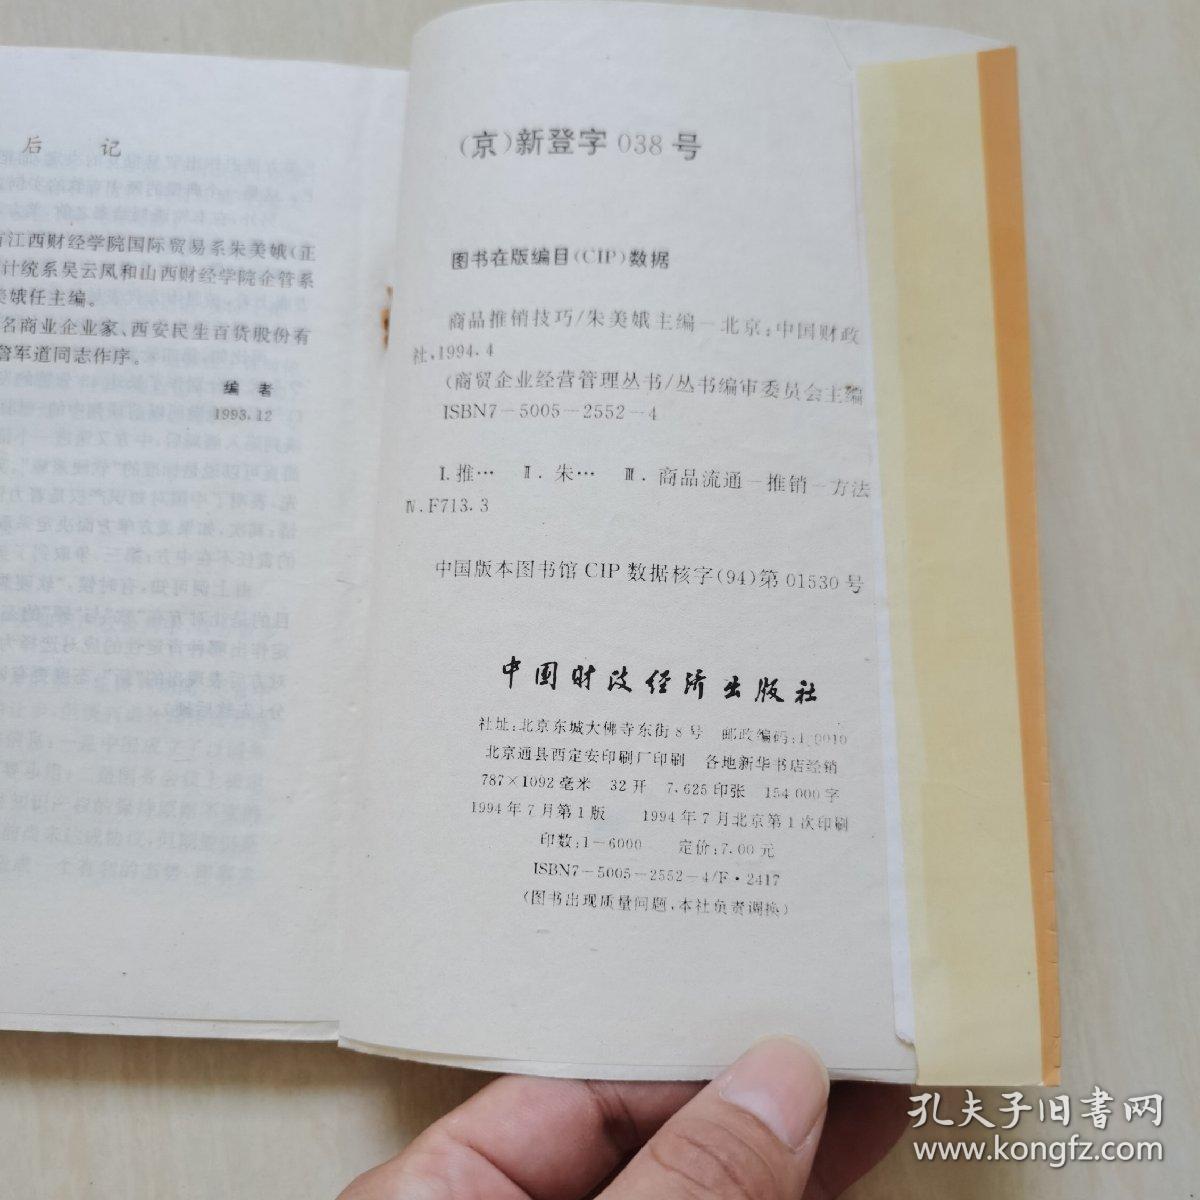 后 记
江西财经学院国际贸易系朱美娥(正
计统系吴云凤和山西财经学院企管系
美娥任主编。
名商业企业家、西安民生百货股份有
军道同志作序。
编 者
1993.12
(京)新登字 038 号
图书在版编目(CIP)数据
商品推销技巧/朱美娥主编－北京:中国财政
社,1994.4
(商贸企业经营管理丛书/丛书编审委员会主编
ISBN7－5005－2552－4
Ⅰ.推… Ⅱ.朱… Ⅲ.商品流通－推销－方法
Ⅳ.F713.3
中国版本图书馆 CIP 数据核字(94)第 01530 号
中国财政经济出版社
社址:北京东城大佛寺东街 8 号 邮政编码:100010
北京通县西定安印刷厂印刷 各地新华书店经销
787×1092毫米 32开 7.625印张 154 000字
1994年7月第1版 1994年7月北京第1次印刷
印数:1－6000 定价:7.00元
ISBN7－5005－2552－4/F·2417
(图书出现质量问题,本社负责调换)
孔夫子旧书网
www.kongfz.com